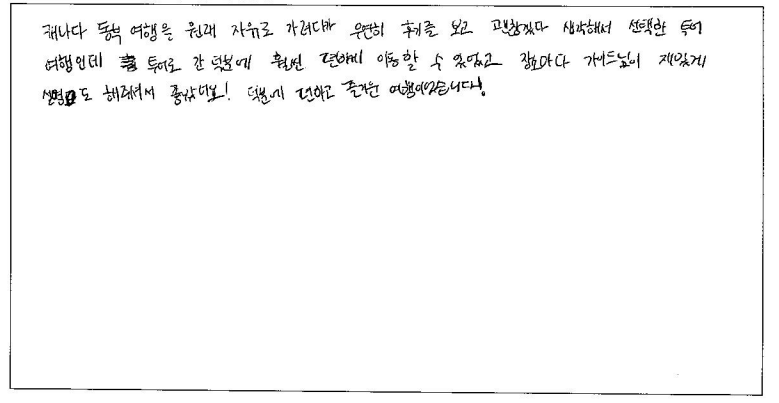 캐나다 동부 여행을 원래 자유로 가려다가 우연히 후기를 보고 괜찮겠다 생각해서 선택한 투어
여행인데 투어로 간 덕분에 훨씬 편하게 이동할 수 있었고 장소마다 가이드님이 재밌게
설명도 해주셔서 좋았어요! 덕분에 편하고 즐거운 여행이었습니다!